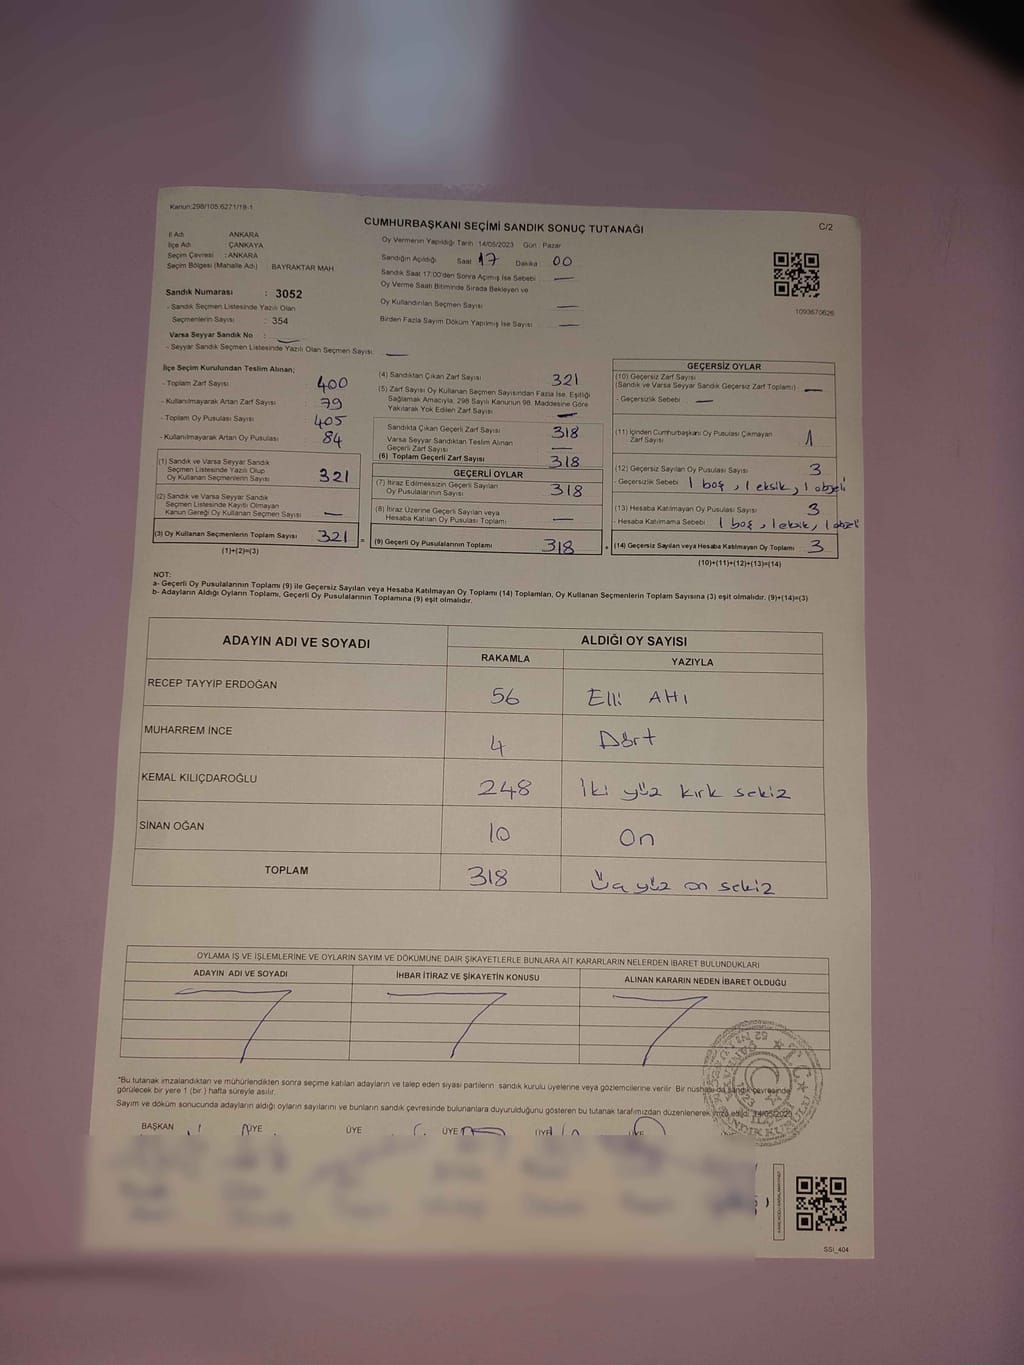 Kanun:298/105;6271/18-1
CUMHURBAŞKANI SEÇİMİ SANDIK SONUÇ TUTANAĞI
C/2
İl Adı : ANKARA
İlçe Adı : ÇANKAYA
Seçim Çevresi : ANKARA
Seçim Bölgesi (Mahalle Adı) : BAYRAKTAR MAH
Oy Vermenin Yapıldığı Tarih : 14/05/2023 Gün : Pazar
Sandığın Açıldığı Saat 17 Dakika : 00
Sandık Saat 17:00'den Sonra Açımış İse Sebebi : —
Oy Verme Saati Bitiminde Sırada Bekleyen ve
Oy Kullandırılan Seçmen Sayısı —
Birden Fazla Sayım Döküm Yapılmış İse Sayısı : —
1093670626
Sandık Numarası : 3052
- Sandık Seçmen Listesinde Yazılı Olan
Seçmenlerin Sayısı : 354
Varsa Seyyar Sandık No : —
- Seyyar Sandık Seçmen Listesinde Yazılı Olan Seçmen Sayısı: —
İlçe Seçim Kurulundan Teslim Alınan;
- Toplam Zarf Sayısı 400
- Kullanılmayarak Artan Zarf Sayısı 79
- Toplam Oy Pusulası Sayısı 405
- Kullanılmayarak Artan Oy Pusulası 84
(1) Sandık ve Varsa Seyyar Sandık
Seçmen Listesinde Yazılı Olup
Oy Kullanan Seçmenlerin Sayısı 321
(2) Sandık ve Varsa Seyyar Sandık
Seçmen Listesinde Kayıtlı Olmayan
Kanun Gereği Oy Kullanan Seçmen Sayısı —
(3) Oy Kullanan Seçmenlerin Toplam Sayısı 321
(1)+(2)=(3)
=
(4) Sandıktan Çıkan Zarf Sayısı 321
(5) Zarf Sayısı Oy Kullanan Seçmen Sayısından Fazla İse, Eşitliği
Sağlamak Amacıyla, 298 Sayılı Kanunun 98. Maddesine Göre
Yakılarak Yok Edilen Zarf Sayısı —
Sandıkta Çıkan Geçerli Zarf Sayısı 318
Varsa Seyyar Sandıktan Teslim Alınan
Geçerli Zarf Sayısı —
(6) Toplam Geçerli Zarf Sayısı 318
GEÇERLİ OYLAR
(7) İtiraz Edilmeksizin Geçerli Sayılan
Oy Pusulalarının Sayısı 318
(8) İtiraz Üzerine Geçerli Sayılan veya
Hesaba Katılan Oy Pusulası Toplamı —
(9) Geçerli Oy Pusulalarının Toplamı 318
+
GEÇERSİZ OYLAR
(10) Geçersiz Zarf Sayısı
(Sandık ve Varsa Seyyar Sandık Geçersiz Zarf Toplamı) —
- Geçersizlik Sebebi : —
(11) İçinden Cumhurbaşkanı Oy Pusulası Çıkmayan
Zarf Sayısı 1
(12) Geçersiz Sayılan Oy Pusulası Sayısı 3
- Geçersizlik Sebebi : 1 boş, 1 eksik, 1
(13) Hesaba Katılmayan Oy Pusulası Sayısı 3
- Hesaba Katılmama Sebebi : 1 boş, 1 eksik, 1
(14) Geçersiz Sayılan veya Hesaba Katılmayan Oy Toplamı 3
(10)+(11)+(12)+(13)=(14)
NOT:
a- Geçerli Oy Pusulalarının Toplamı (9) ile Geçersiz Sayılan veya Hesaba Katılmayan Oy Toplamı (14) Toplamları, Oy Kullanan Seçmenlerin Toplam Sayısına (3) eşit olmalıdır. (9)+(14)=(3)
b- Adayların Aldığı Oyların Toplamı, Geçerli Oy Pusulalarının Toplamına (9) eşit olmalıdır.
ADAYIN ADI VE SOYADI
ALDIĞI OY SAYISI
RAKAMLA YAZIYLA
RECEP TAYYİP ERDOĞAN 56 Elli Altı
MUHARREM İNCE 4 Dört
KEMAL KILIÇDAROĞLU 248 İki yüz kırk sekiz
SİNAN OĞAN 10 On
TOPLAM 318 Üç yüz on sekiz
OYLAMA İŞ VE İŞLEMLERİNE VE OYLARIN SAYIM VE DÖKÜMÜNE DAİR ŞİKAYETLERLE BUNLARA AİT KARARLARIN NELERDEN İBARET BULUNDUKLARI
ADAYIN ADI VE SOYADI
İHBAR İTİRAZ VE ŞİKAYETİN KONUSU
ALINAN KARARIN NEDEN İBARET OLDUĞU
*Bu tutanak imzalandıktan ve mühürlendikten sonra seçime katılan adayların ve talep eden siyasi partilerin sandık kurulu üyelerine veya gözlemcilerine verilir. Bir nüshası da sandık çevresinde
görülecek bir yere 1 (bir) hafta süreyle asılır.
Sayım ve döküm sonucunda adayların aldığı oyların sayılarını ve bunların sandık çevresinde bulunanlara duyurulduğunu gösteren bu tutanak tarafımızdan düzenlenerek imza edildi. 14/05/2023
BAŞKAN ÜYE ÜYE ÜYE ÜYE ÜYE
SSI_404